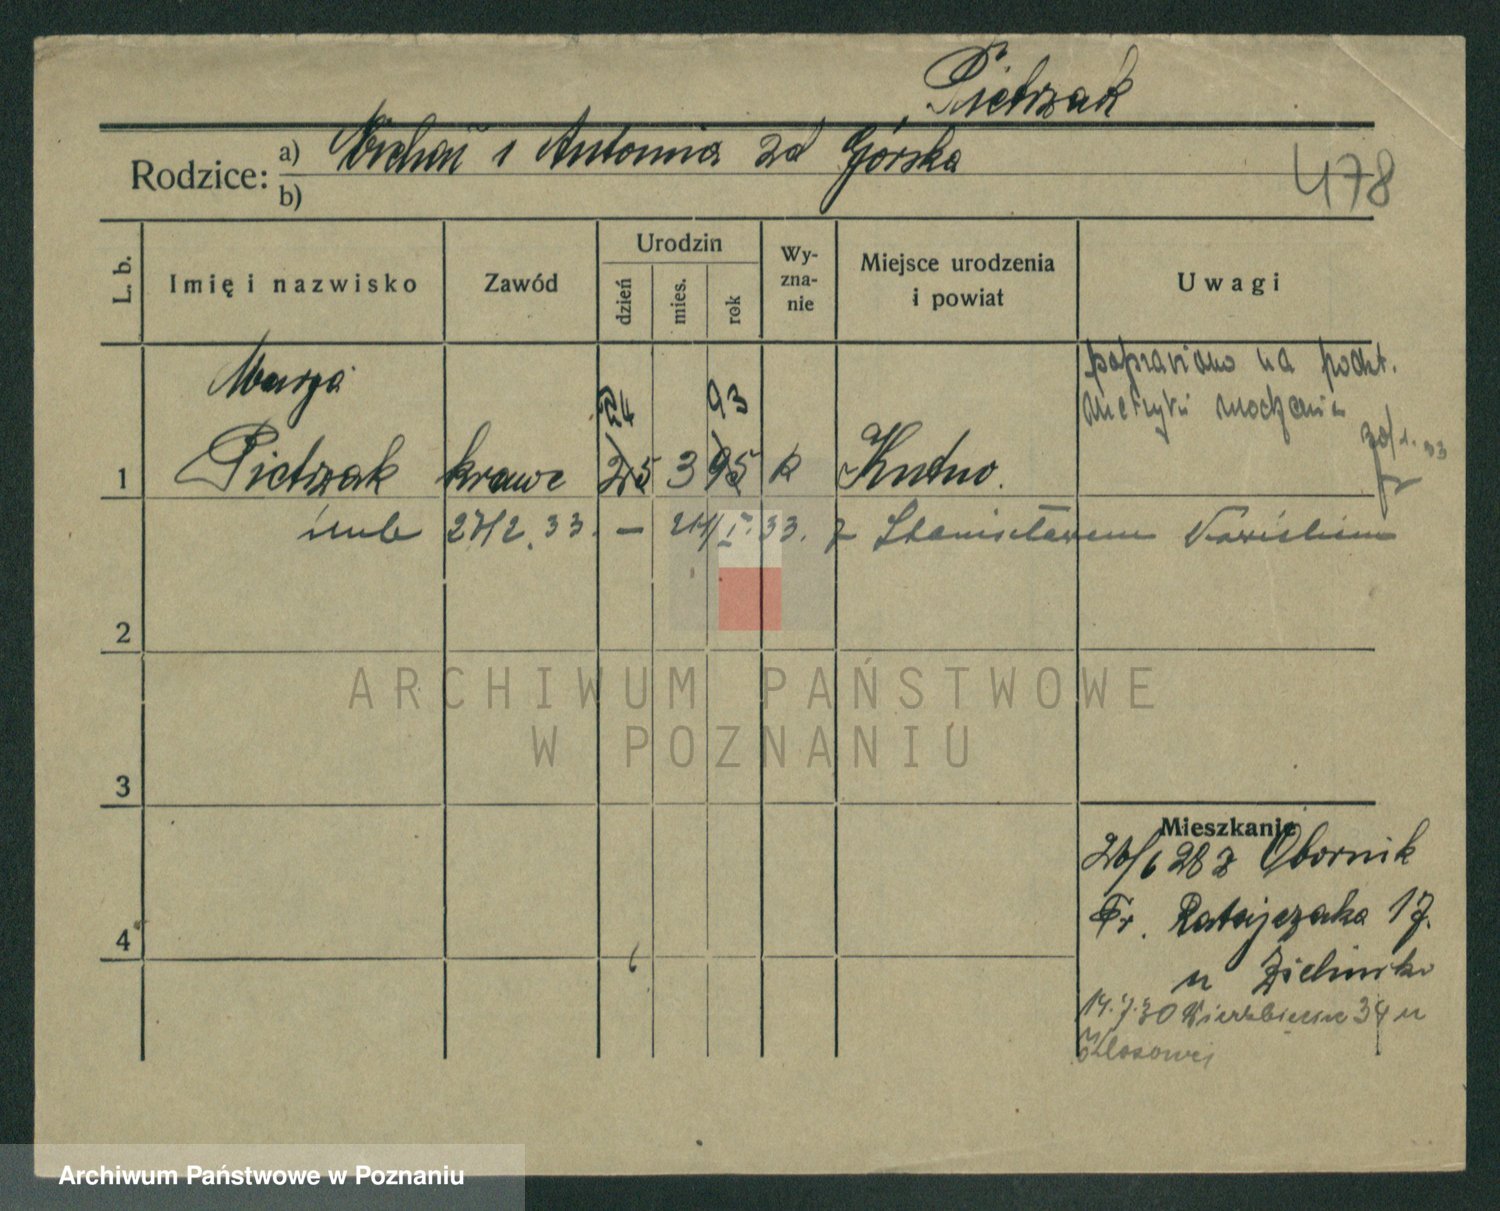 Pietrzak
Rodzice: a) Michał i Antonina zd Górska
b)
478
L. b.
Imię i nazwisko
Zawód
Urodzin
dzień
mies.
rok
Wy-
zna-
nie
Miejsce urodzenia
i powiat
Uwagi
Marja
93
poprawiono na podst.
metryki urodzenia
30/1. 33
1 Pietrzak krawc 25 3 95 k Kutno.
ślub 27/2. 33. — 214/I. 33. z Stanisławem
2
ARCHIWUM PAŃSTWOWE
W POZNANIU
3
Mieszkanie
26/6 28 z Obornik
Fr. Ratajczaka 17.
4
u Zielinski
14.7.30 Wierzbięcice 34 u
Kłosowej
Archiwum Państwowe w Poznaniu